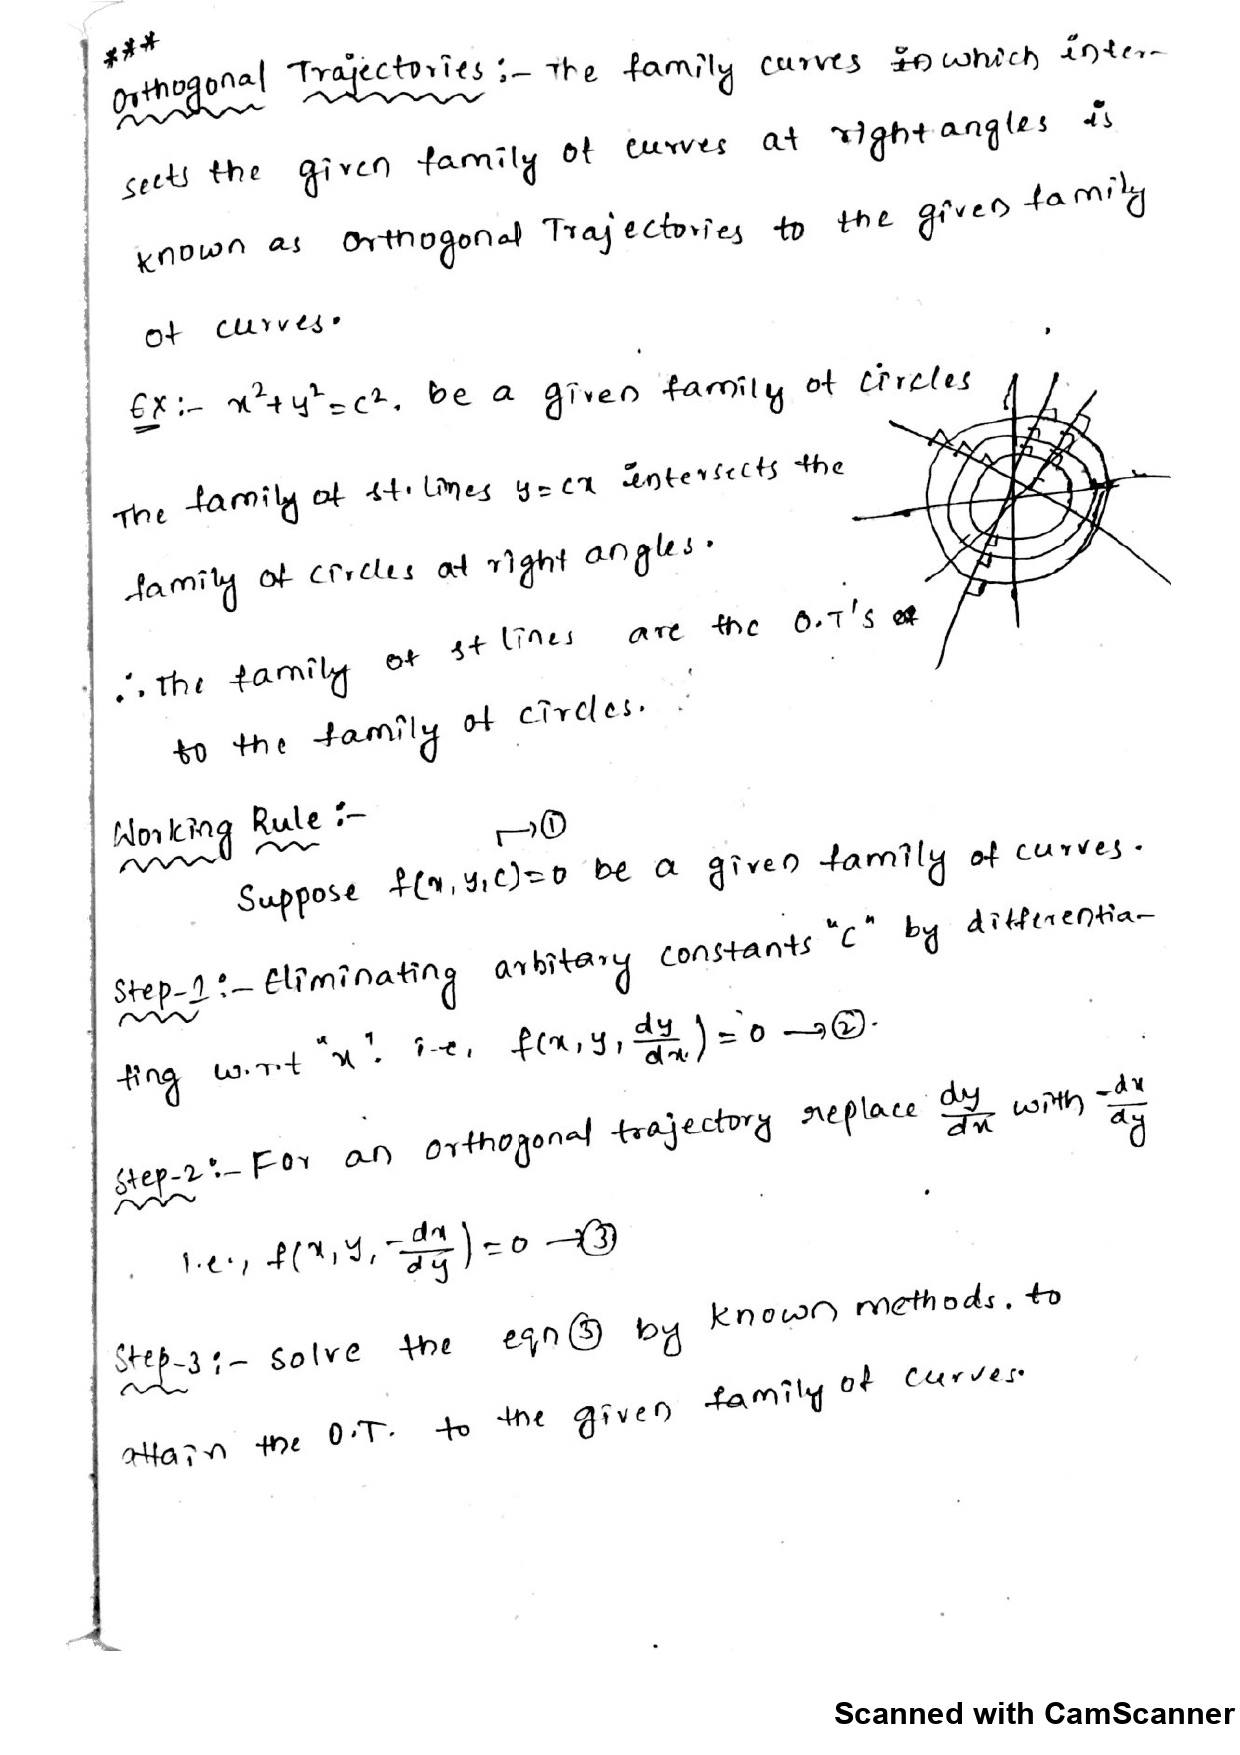 ***
Orthogonal Trajectories :- The family curves in which inter-
sects the given family of curves at right angles is
known as Orthogonal Trajectories to the given family
of curves.
Ex :- x²+y²=c². be a given family of circles
The family of st. lines y=cx intersects the
family of circles at right angles.
∴ The family of st lines are the O.T's
to the family of circles.
Working Rule :-
→①
Suppose f(x,y,c)=0 be a given family of curves.
Step-1 :- Eliminating arbitary constants "c" by differentia-
ting w.r.t "x". i.e, f(x, y, dy/dx) = 0 →②.
Step-2 :- For an orthogonal trajectory replace dy/dx with -dx/dy
i.e., f(x, y, -dx/dy) = 0 →③
Step-3 :- solve the eqn ③ by known methods. to
attain the O.T. to the given family of curves.
Scanned with CamScanner